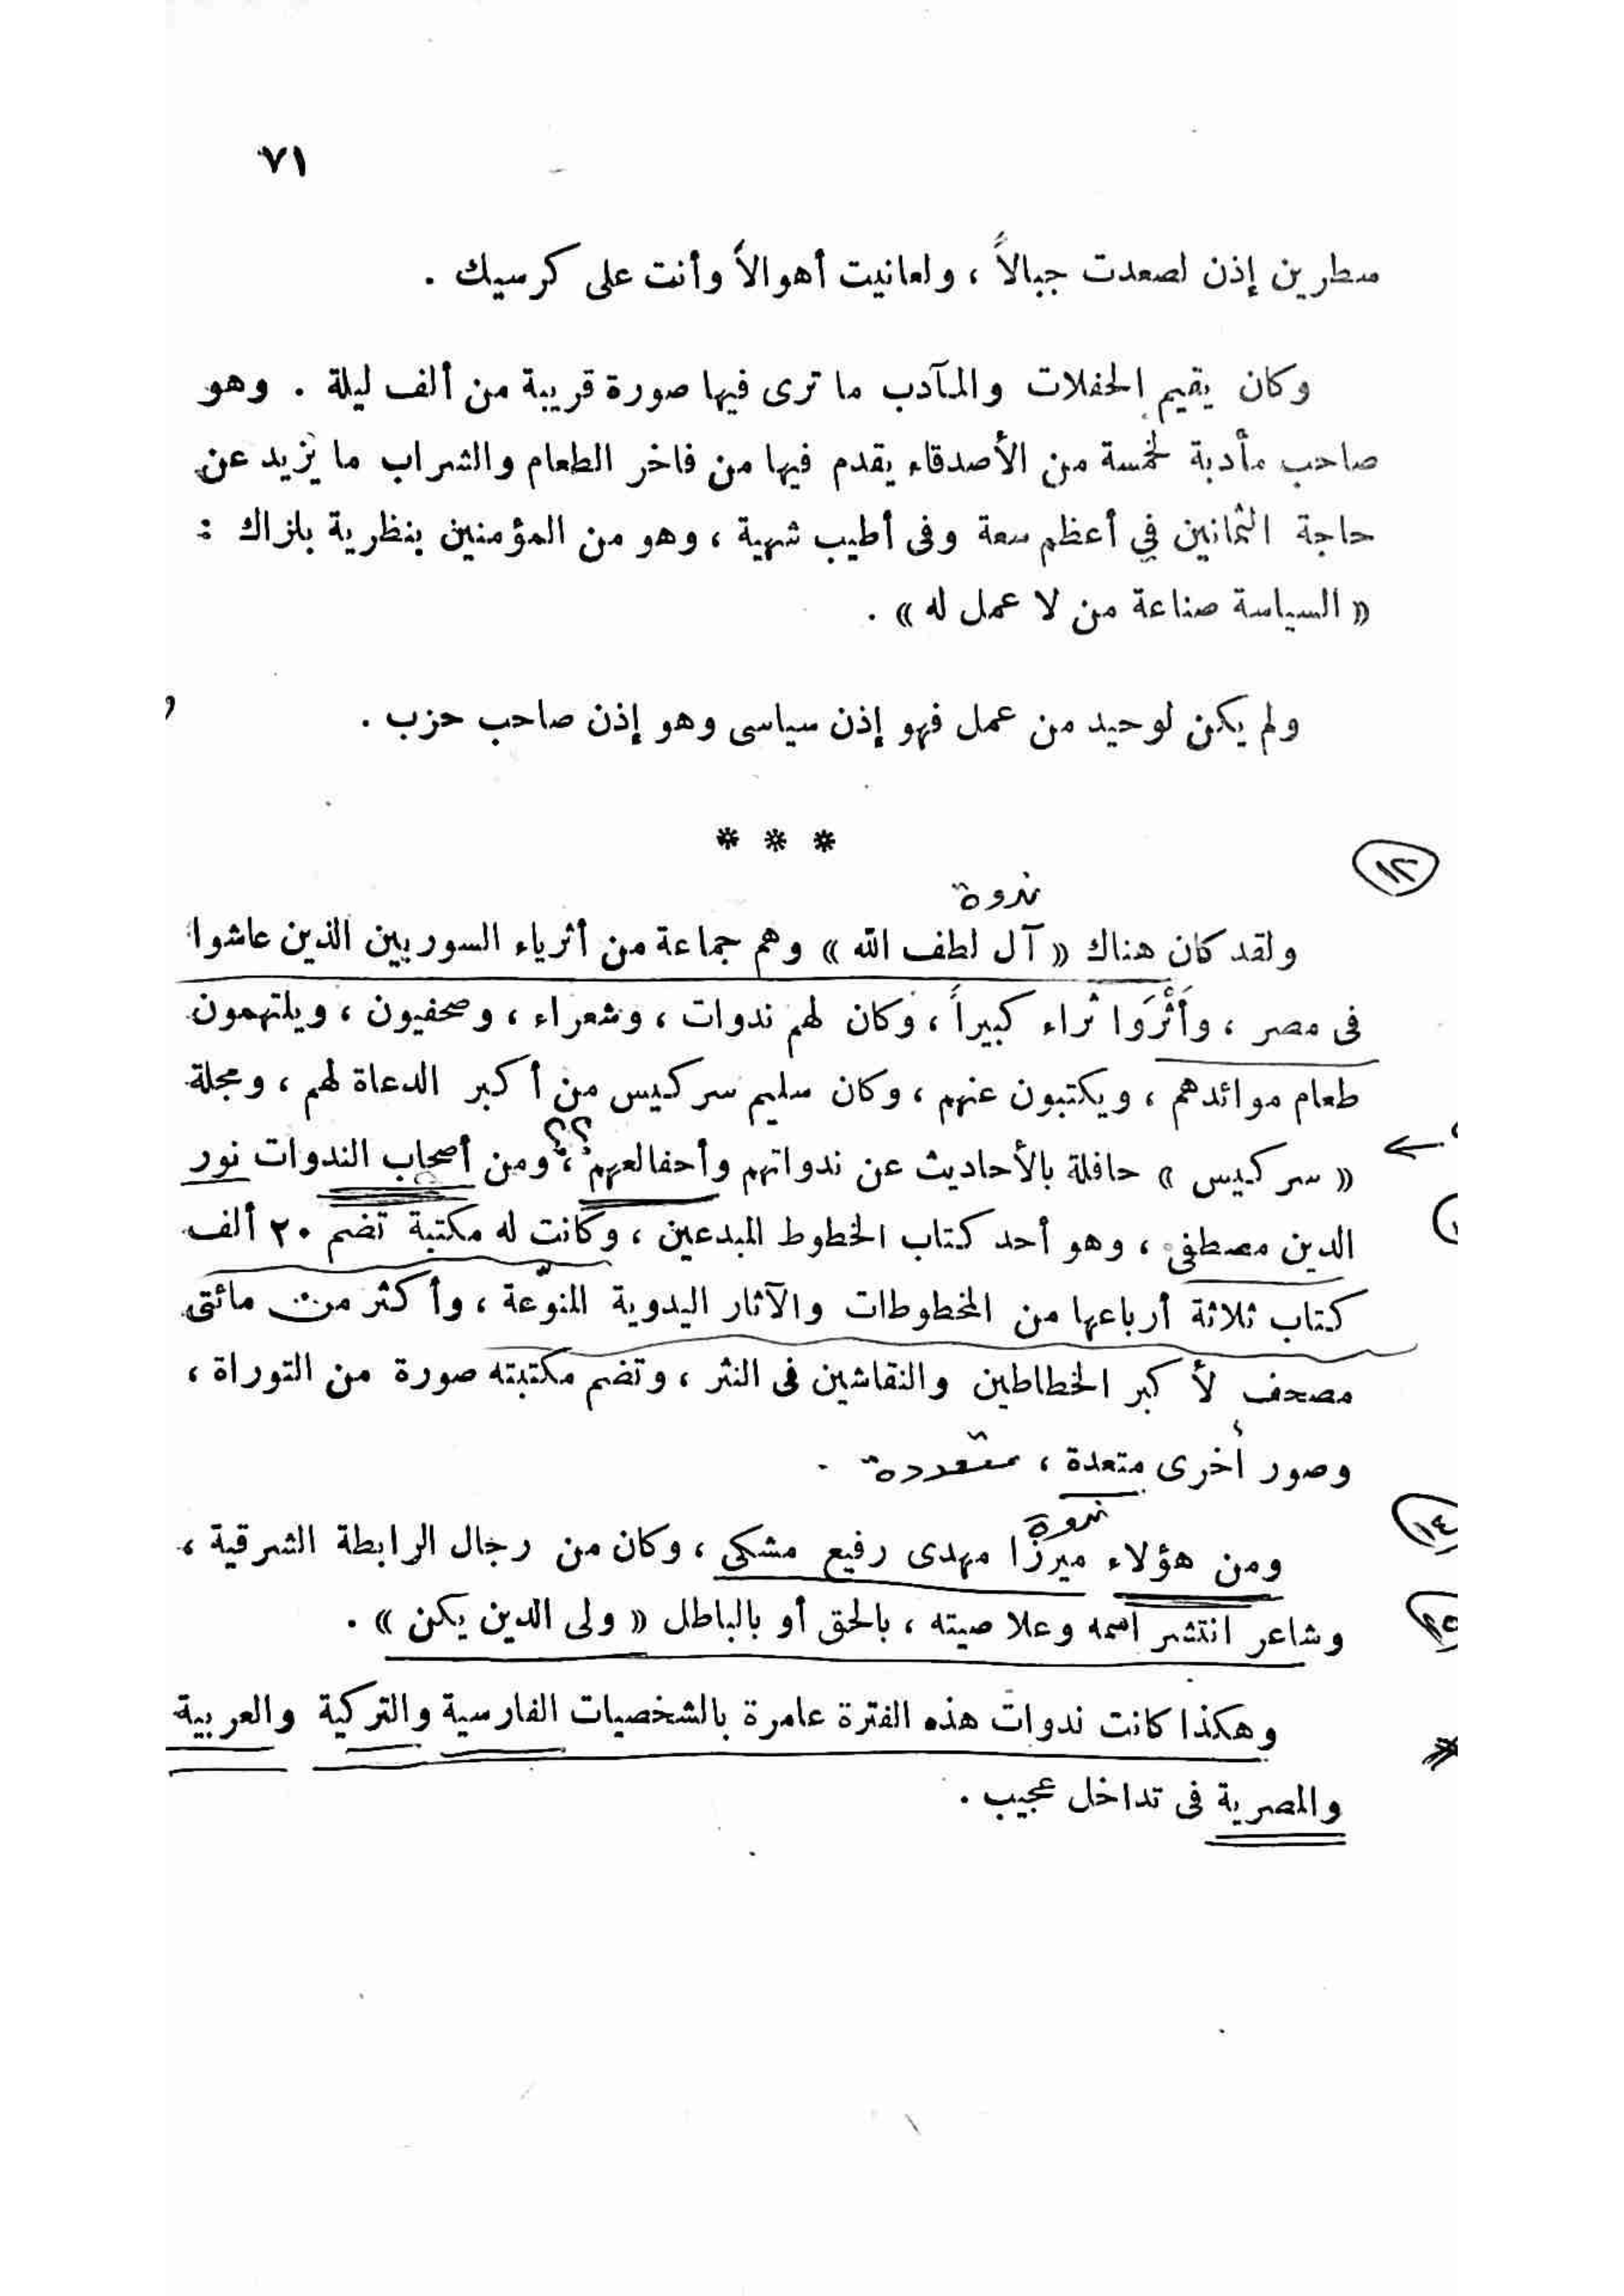 ٧١
سطرين إذن لصعدت جبالاً ، ولعانيت أهوالاً وأنت على كرسيك .
وكان يقيم الحفلات والمآدب ما ترى فيها صورة قريبة من ألف ليلة . وهو
صاحب مأدبة لخمسة من الأصدقاء يقدم فيها من فاخر الطعام والشراب ما يزيد عن
حاجة الثمانين في أعظم سعة وفى أطيب شهية ، وهو من المؤمنين بنظرية بلزاك :
« السياسة صناعة من لا عمل له » .
ولم يكن لوحيد من عمل فهو إذن سياسى وهو إذن صاحب حزب .
* * *
١٢
ندوة
ولقد كان هناك « آل لطف الله » وهم جماعة من أثرياء السوريين الذين عاشوا
فى مصر ، وأَثْرَوا ثراء كبيراً ، وكان لهم ندوات ، وشعراء ، وصحفيون ، ويلتهمون
طعام موائدهم ، ويكتبون عنهم ، وكان سليم سركيس من أكبر الدعاة لهم ، ومجلة
؟؟
« سركيس » حافلة بالأحاديث عن ندواتهم وأحفالعهم ، ومن أصحاب الندوات نور
الدين مصطفى ، وهو أحد كتاب الخطوط المبدعين ، وكانت له مكتبة تضم ٢٠ ألف
كتاب ثلاثة أرباعها من المخطوطات والآثار اليدوية المنوّعة ، وأكثر من مائتى
مصحف لأكبر الخطاطين والنقاشين فى النثر ، وتضم مكتبته صورة من التوراة ،
وصور أخرى متعدة ، متعددة .
١٤
ندوة
ومن هؤلاء ميرزا مهدى رفيع مشكى ، وكان من رجال الرابطة الشرقية ،
١٥
وشاعر انتشر اسمه وعلا صيته ، بالحق أو بالباطل « ولى الدين يكن » .
وهكذا كانت ندوات هذه الفترة عامرة بالشخصيات الفارسية والتركية والعربية
والمصرية فى تداخل عجيب .